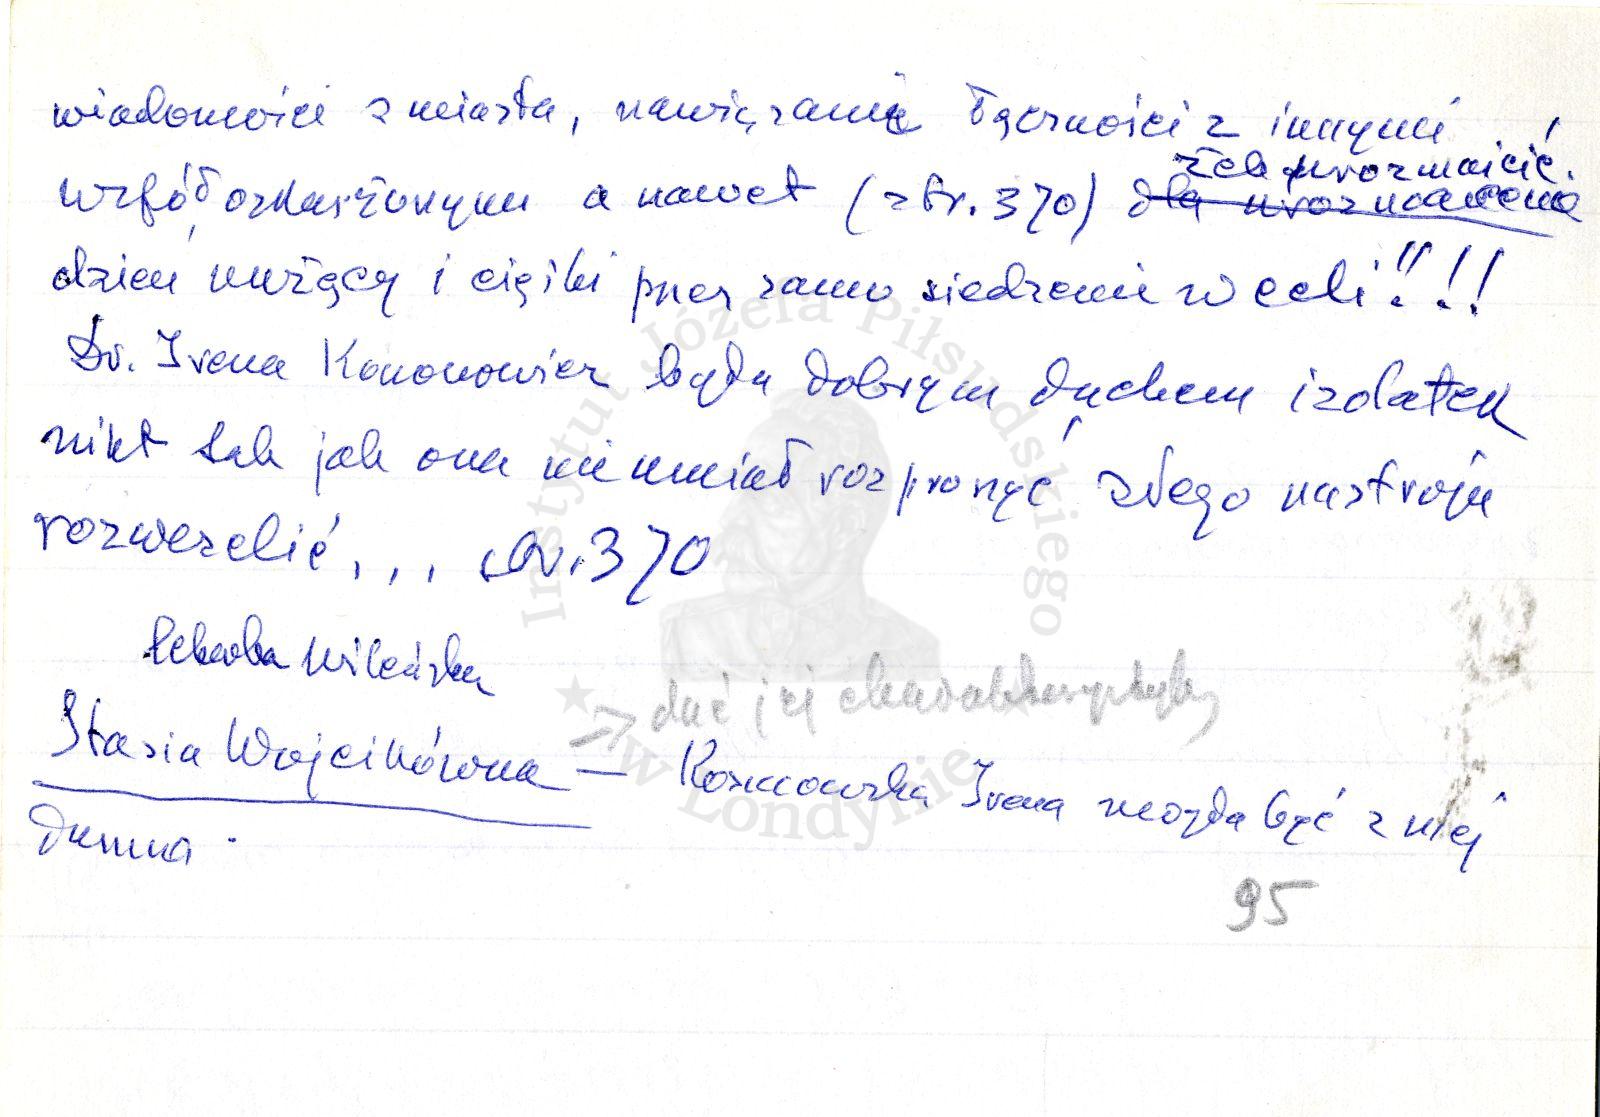 wiadomości z miasta, nawiązanie łączności z innymi
żeby urozmaicić
współoskarżonymi a nawet (str. 370) dla urozmaicenia
dzień nużący i ciężki przez samo siedzenie w celi!!!!
Dr. Irena Kononowicz była dobrym duchem izolatek
nikt tak jak ona nie umiał rozproszyć złego nastroju
rozweselić, , , str. 370
Wileńska
→ dać jej charakterystykę
Stasia Wojcikówna — Kosmowska Irena mogła być z niej
dumna.
95
Instytut Józefa Piłsudskiego
w Londynie